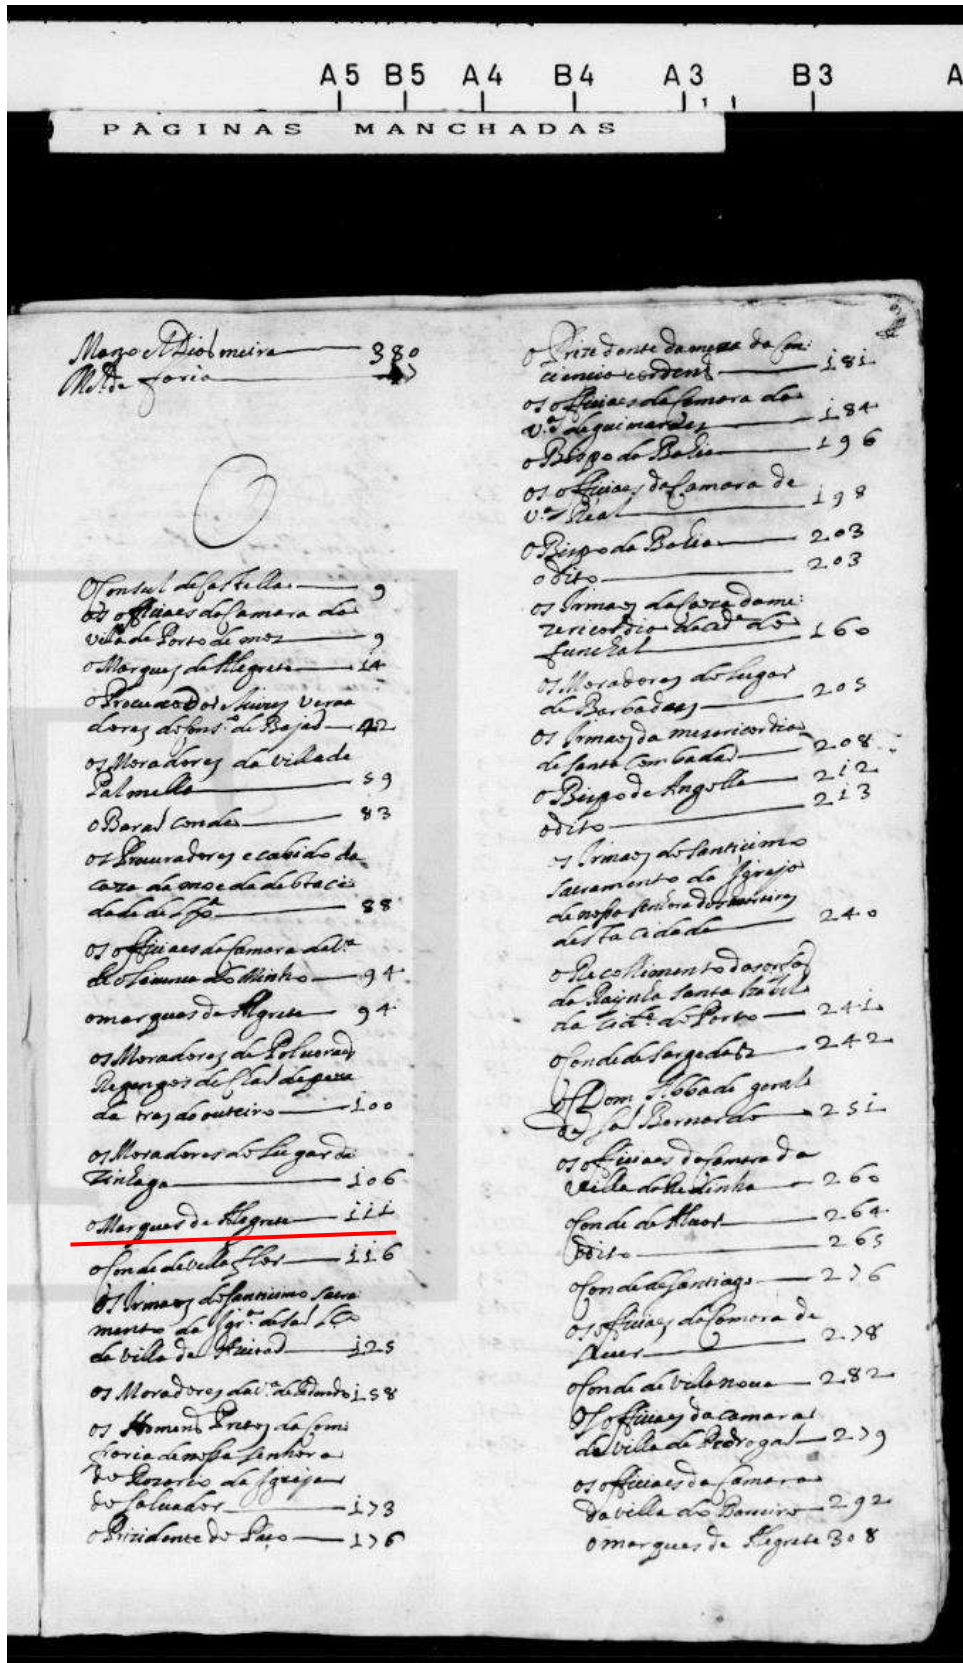 A5 B5 A4 B4 A3 B3 A
PÁGINAS MANCHADAS
380
O
O Consul de Castella 9
Os officiaes da Camara da
villa de Porto de mos 9
o Marques de Alegrete 14
42
os Moradores da villa de
Palmella 59
o Baraõ Conde 83
os Procuradores e cabido da
caza da moeda desta ci
dade de Lxª 88
os officiaes da Camara da Vª
do Minho 94
o marques de Alegrete 94
os Moradores de
100
os Moradores do Lugar de
106
o Marques de Alegrete 111
o Conde de villa flor 116
os Irmaos do Santissimo Sacra
mento da Igrª de
da villa de 125
os Moradores da vª de 158
os Homens Pretos da Com
fraria de nossa senhora
do Rozario da Igreja
do Salvador 173
o Prizidente do Paço 176
o Prizidente da meza da Con
ciencia e ordens 181
os officiaes da Camara da
vª de guimaraes 184
o Bispo da Bahia 196
os officiaes da Camara de
vª Real 198
o Bispo da Bahia 203
o dito 203
os Irmaos da Caza da me
zericordia da cidª do
funchal 160
os Moradores do Lugar
de 205
os Irmaos da mesericordia
de Santa Combadaõ 208
o Bispo de Angolla 212
o dito 213
os Irmaos do Santicimo
Sacramento da Igreja
de nossa Senhora dos martires
desta cidade 240
o Recolhimento das orfas
da Raynha Santa Izabel
da Cidª do Porto 241
o Conde de Sargedas 242
o Dom Abbade geral
de Saõ Bernardo 251
os officiaes da Camara da
villa da Redinha 260
o Conde de Alvor 264
o dito 265
o Conde de Santiago 276
os officiaes da Camara de
278
o Conde de vila nova 282
os officiaes da camara
da villa de Pedrogaõ 279
os officiaes da Camara
da villa do Barreiro 292
o marques de Alegrete 308